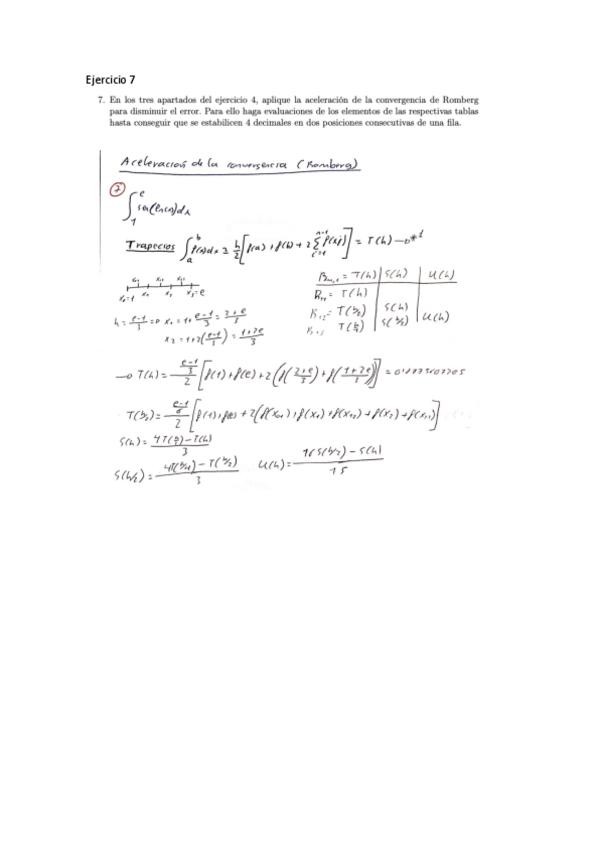 Ejercicio 7
7. En los tres apartados del ejercicio 4, aplique la aceleración de la convergencia de Romberg
para disminuir el error. Para ello haga evaluaciones de los elementos de las respectivas tablas
hasta conseguir que se estabilicen 4 decimales en dos posiciones consecutivas de una fila.
Aceleración de la convergencia (Romberg)
① ∫₁ᵉ sen(ln(x))dx
Trapecios ∫ₐᵇ f(x)dx ≈ h/2 [f(a) + f(b) + 2 Σ f(xj)] = T(h)
T(h) | S(h) | U(h)
R₁₁ = T(h)
T(h/2) | S(h)
T(h/4) | S(h/2) | U(h)
x₀=1 x₁ x₂ x₃=e
h = (e-1)/3 => x₁ = 1+ (e-1)/3 = (2+e)/3
x₂ = 1+2((e-1)/3) = (1+2e)/3
T(h) = ((e-1)/3)/2 [f(1)+f(e)+2(f((2+e)/3)+f((1+2e)/3))] =
T(h/2) = ((e-1)/6)/2 [f(1)+f(e)+2(
S(h) = (4T(h/2)-T(h))/3
S(h/2) = (4T(h/4)-T(h/2))/3 U(h) = (16S(h/2)-S(h))/15